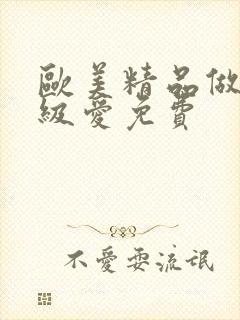 歐美精品做
級愛免費
不愛耍流氓